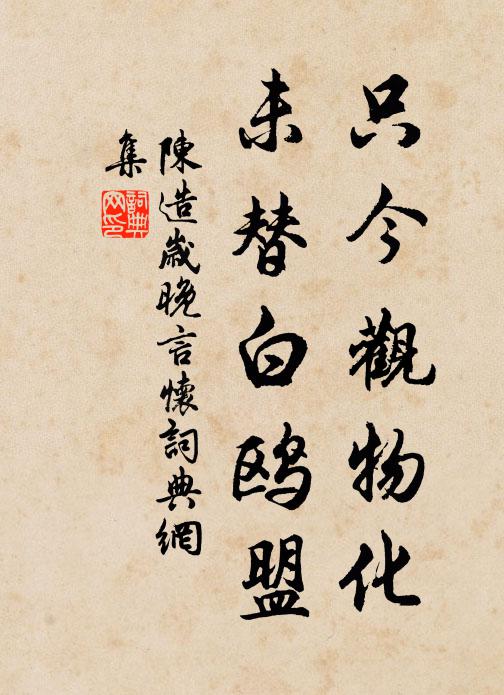 只今觀物化
未替白鸥盟
陳造歲晚言懷詞典網
集
詞典网印